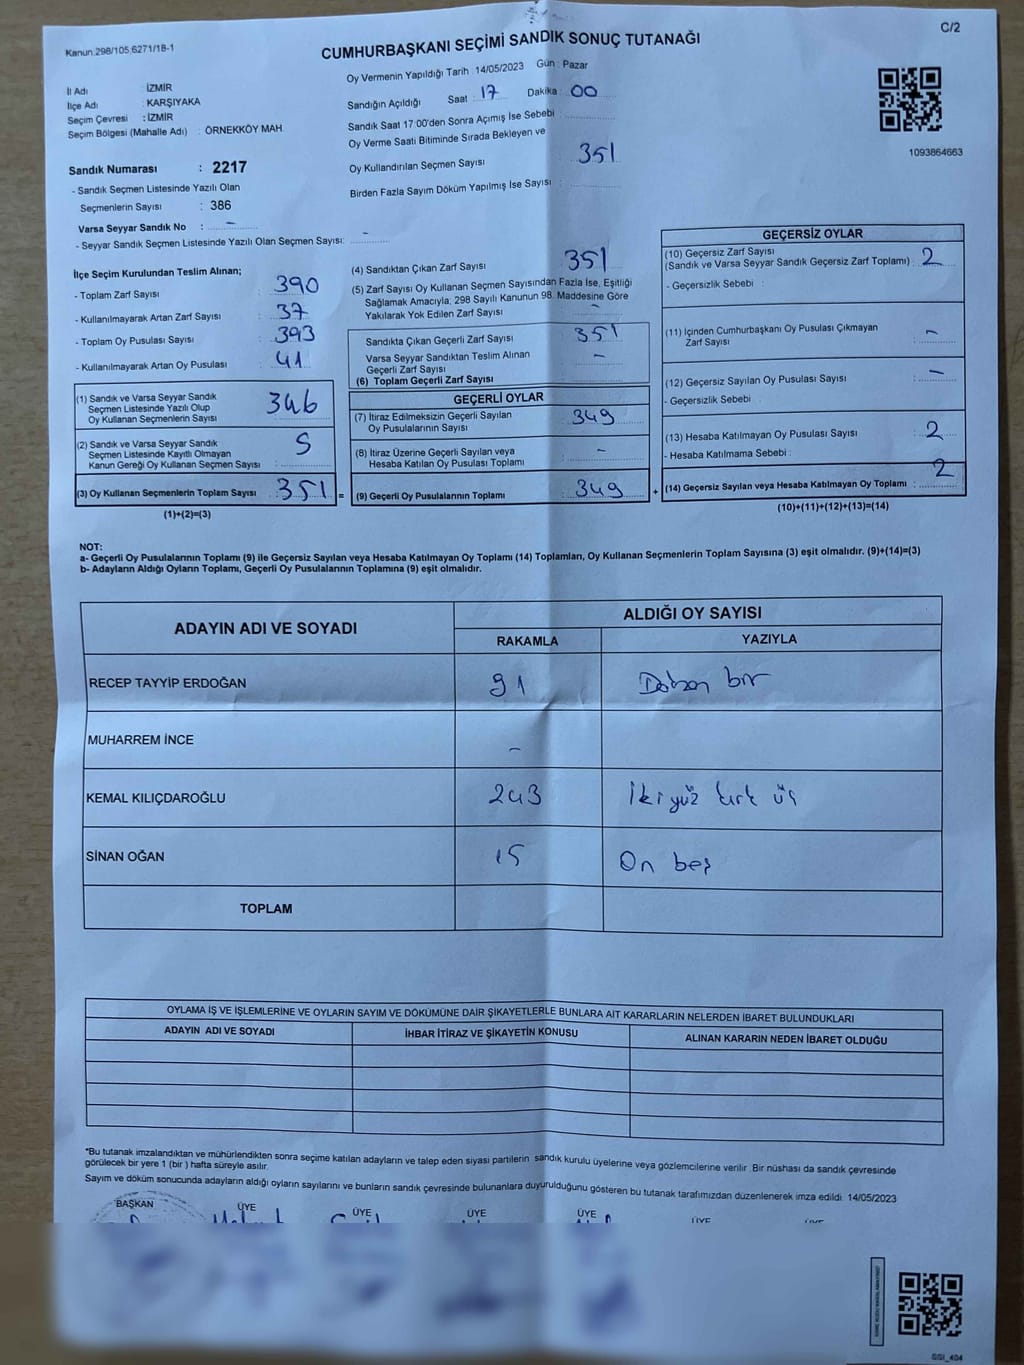 C/2
Kanun 298/105,6271/18-1
CUMHURBAŞKANI SEÇİMİ SANDIK SONUÇ TUTANAĞI
İl Adı : İZMİR
İlçe Adı : KARŞIYAKA
Seçim Çevresi : İZMİR
Seçim Bölgesi (Mahalle Adı) : ÖRNEKKÖY MAH.
Sandık Numarası : 2217
- Sandık Seçmen Listesinde Yazılı Olan
Seçmenlerin Sayısı : 386
Varsa Seyyar Sandık No : -
- Seyyar Sandık Seçmen Listesinde Yazılı Olan Seçmen Sayısı: -
Oy Vermenin Yapıldığı Tarih : 14/05/2023 Gün : Pazar
Sandığın Açıldığı Saat : 17 Dakika : 00
Sandık Saat 17:00'den Sonra Açımış İse Sebebi :
Oy Verme Saati Bitiminde Sırada Bekleyen ve
Oy Kullandırılan Seçmen Sayısı : 351
Birden Fazla Sayım Döküm Yapılmış İse Sayısı :
1093864663
İlçe Seçim Kurulundan Teslim Alınan;
- Toplam Zarf Sayısı : 390
- Kullanılmayarak Artan Zarf Sayısı : 37
- Toplam Oy Pusulası Sayısı : 393
- Kullanılmayarak Artan Oy Pusulası : 41
(1) Sandık ve Varsa Seyyar Sandık
Seçmen Listesinde Yazılı Olup
Oy Kullanan Seçmenlerin Sayısı : 346
(2) Sandık ve Varsa Seyyar Sandık
Seçmen Listesinde Kayıtlı Olmayan
Kanun Gereği Oy Kullanan Seçmen Sayısı : 5
(3) Oy Kullanan Seçmenlerin Toplam Sayısı : 351 =
(1)+(2)=(3)
(4) Sandıktan Çıkan Zarf Sayısı : 351
(5) Zarf Sayısı Oy Kullanan Seçmen Sayısından Fazla İse, Eşitliği
Sağlamak Amacıyla; 298 Sayılı Kanunun 98. Maddesine Göre
Yakılarak Yok Edilen Zarf Sayısı : -
Sandıkta Çıkan Geçerli Zarf Sayısı : 351
Varsa Seyyar Sandıktan Teslim Alınan
Geçerli Zarf Sayısı : -
(6) Toplam Geçerli Zarf Sayısı :
GEÇERLİ OYLAR
(7) İtiraz Edilmeksizin Geçerli Sayılan
Oy Pusulalarının Sayısı : 349
(8) İtiraz Üzerine Geçerli Sayılan veya
Hesaba Katılan Oy Pusulası Toplamı : -
(9) Geçerli Oy Pusulalarının Toplamı : 349 +
GEÇERSİZ OYLAR
(10) Geçersiz Zarf Sayısı
(Sandık ve Varsa Seyyar Sandık Geçersiz Zarf Toplamı) : 2
- Geçersizlik Sebebi :
(11) İçinden Cumhurbaşkanı Oy Pusulası Çıkmayan
Zarf Sayısı : -
(12) Geçersiz Sayılan Oy Pusulası Sayısı : -
- Geçersizlik Sebebi :
(13) Hesaba Katılmayan Oy Pusulası Sayısı : 2
- Hesaba Katılmama Sebebi :
(14) Geçersiz Sayılan veya Hesaba Katılmayan Oy Toplamı : 2
(10)+(11)+(12)+(13)=(14)
NOT:
a- Geçerli Oy Pusulalarının Toplamı (9) ile Geçersiz Sayılan veya Hesaba Katılmayan Oy Toplamı (14) Toplamları, Oy Kullanan Seçmenlerin Toplam Sayısına (3) eşit olmalıdır. (9)+(14)=(3)
b- Adayların Aldığı Oyların Toplamı, Geçerli Oy Pusulalarının Toplamına (9) eşit olmalıdır.
ADAYIN ADI VE SOYADI ALDIĞI OY SAYISI
RAKAMLA YAZIYLA
RECEP TAYYİP ERDOĞAN 91 Doksan bir
MUHARREM İNCE -
KEMAL KILIÇDAROĞLU 243 İki yüz kırk üç
SİNAN OĞAN 15 On beş
TOPLAM
OYLAMA İŞ VE İŞLEMLERİNE VE OYLARIN SAYIM VE DÖKÜMÜNE DAİR ŞİKAYETLERLE BUNLARA AİT KARARLARIN NELERDEN İBARET BULUNDUKLARI
ADAYIN ADI VE SOYADI İHBAR İTİRAZ VE ŞİKAYETİN KONUSU ALINAN KARARIN NEDEN İBARET OLDUĞU
*Bu tutanak imzalandıktan ve mühürlendikten sonra seçime katılan adayların ve talep eden siyasi partilerin sandık kurulu üyelerine veya gözlemcilerine verilir. Bir nüshası da sandık çevresinde
görülecek bir yere 1 (bir) hafta süreyle asılır.
Sayım ve döküm sonucunda adayların aldığı oyların sayılarını ve bunların sandık çevresinde bulunanlara duyurulduğunu gösteren bu tutanak tarafımızdan düzenlenerek imza edildi. 14/05/2023
BAŞKAN ÜYE ÜYE ÜYE ÜYE ÜYE